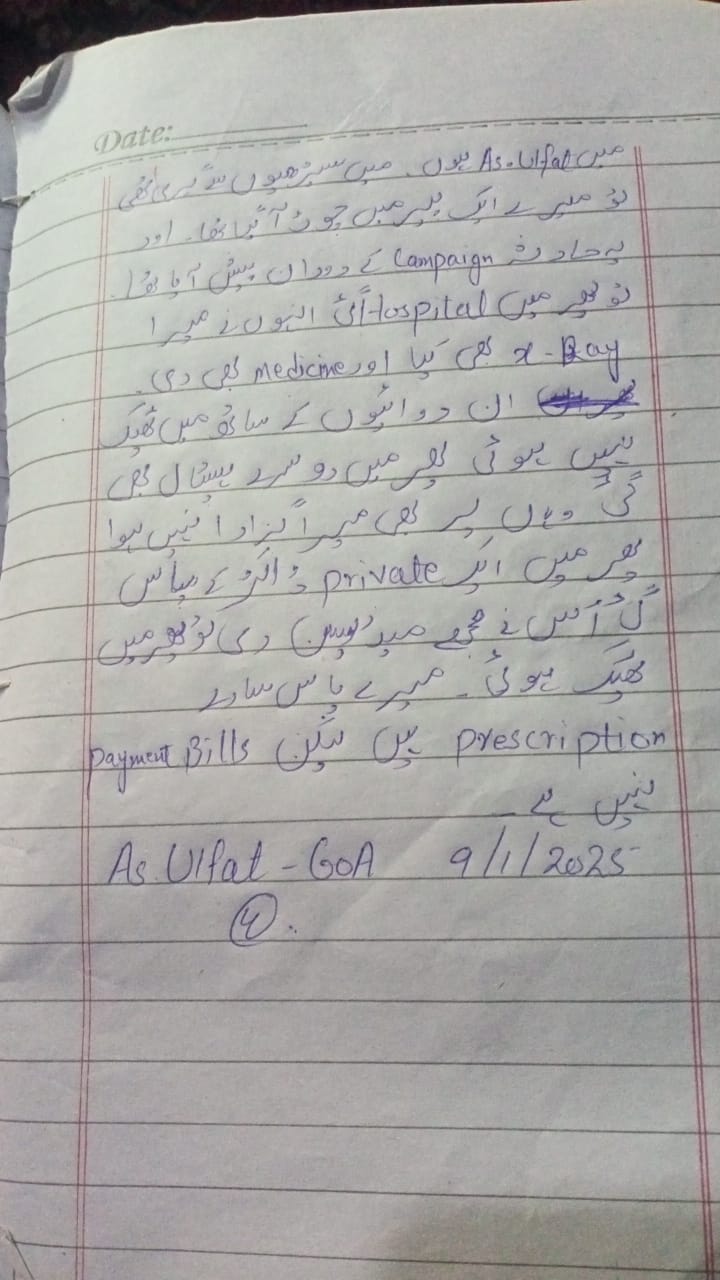 Date:
میں As.Ulfat ہوں۔ میں سیڑھیوں سے گری تھی
تو میرے ایک پیر میں چوٹ آیا تھا۔ اور
یہ حادثہ Campaign کے دوران پیش آیا تھا۔
تو پھر میں Hospital گئی انہوں نے میرا
x-Ray بھی کیا اور medicine بھی دی۔
ان دوائیوں کے ساتھ میں ٹھیک
نہیں ہوئی پھر میں دوسرے ہسپتال بھی
گئی وہاں پر بھی میرا گزارا نہیں ہوا
پھر میں ایک private ڈاکٹر کے پاس
گئی اُس نے مجھے میڈیسن دی تو پھر میں
ٹھیک ہوئی۔ میرے پاس سارے
payment Bills ہیں لیکن prescription
نہیں ہے۔
As.Ulfat - GoA 9/1/2025